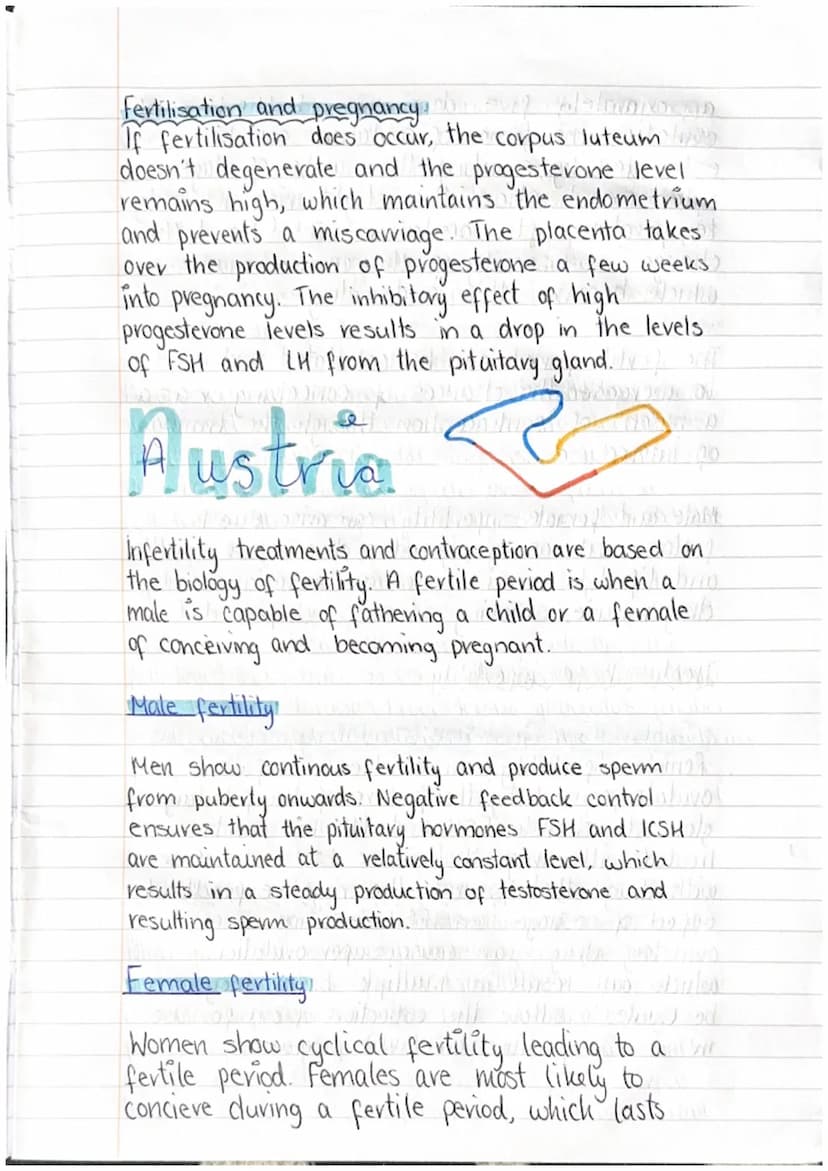 Fertilisation and pregnancy
If fertilisation does occur, the corpus luteum
doesn't degenerate and the progesterone level
remains high, which maintains the endometrium
and prevents a miscarriage. The placenta takes
over the production of progesterone a few weeks
into pregnancy. The inhibitory effect of high
progesterone levels results in a drop in the levels
of FSH and LH from the pituitary gland.
Austria
Infertility treatments and contraception are based on
the biology of fertility. A fertile period is when a
male is capable of fathering a child or a female
of conceiving and becoming pregnant.
Male fertility
Men show continous fertility and produce sperm
from puberty onwards. Negative feedback control
ensures that the pituitary hormones FSH and ICSH
are maintained at a relatively constant level, which
results in a steady production of testosterone and
resulting sperm production.
Female fertility
Women show cyclical fertility leading to a
fertile period. Females are most likely to
concieve during a fertile period, which lasts